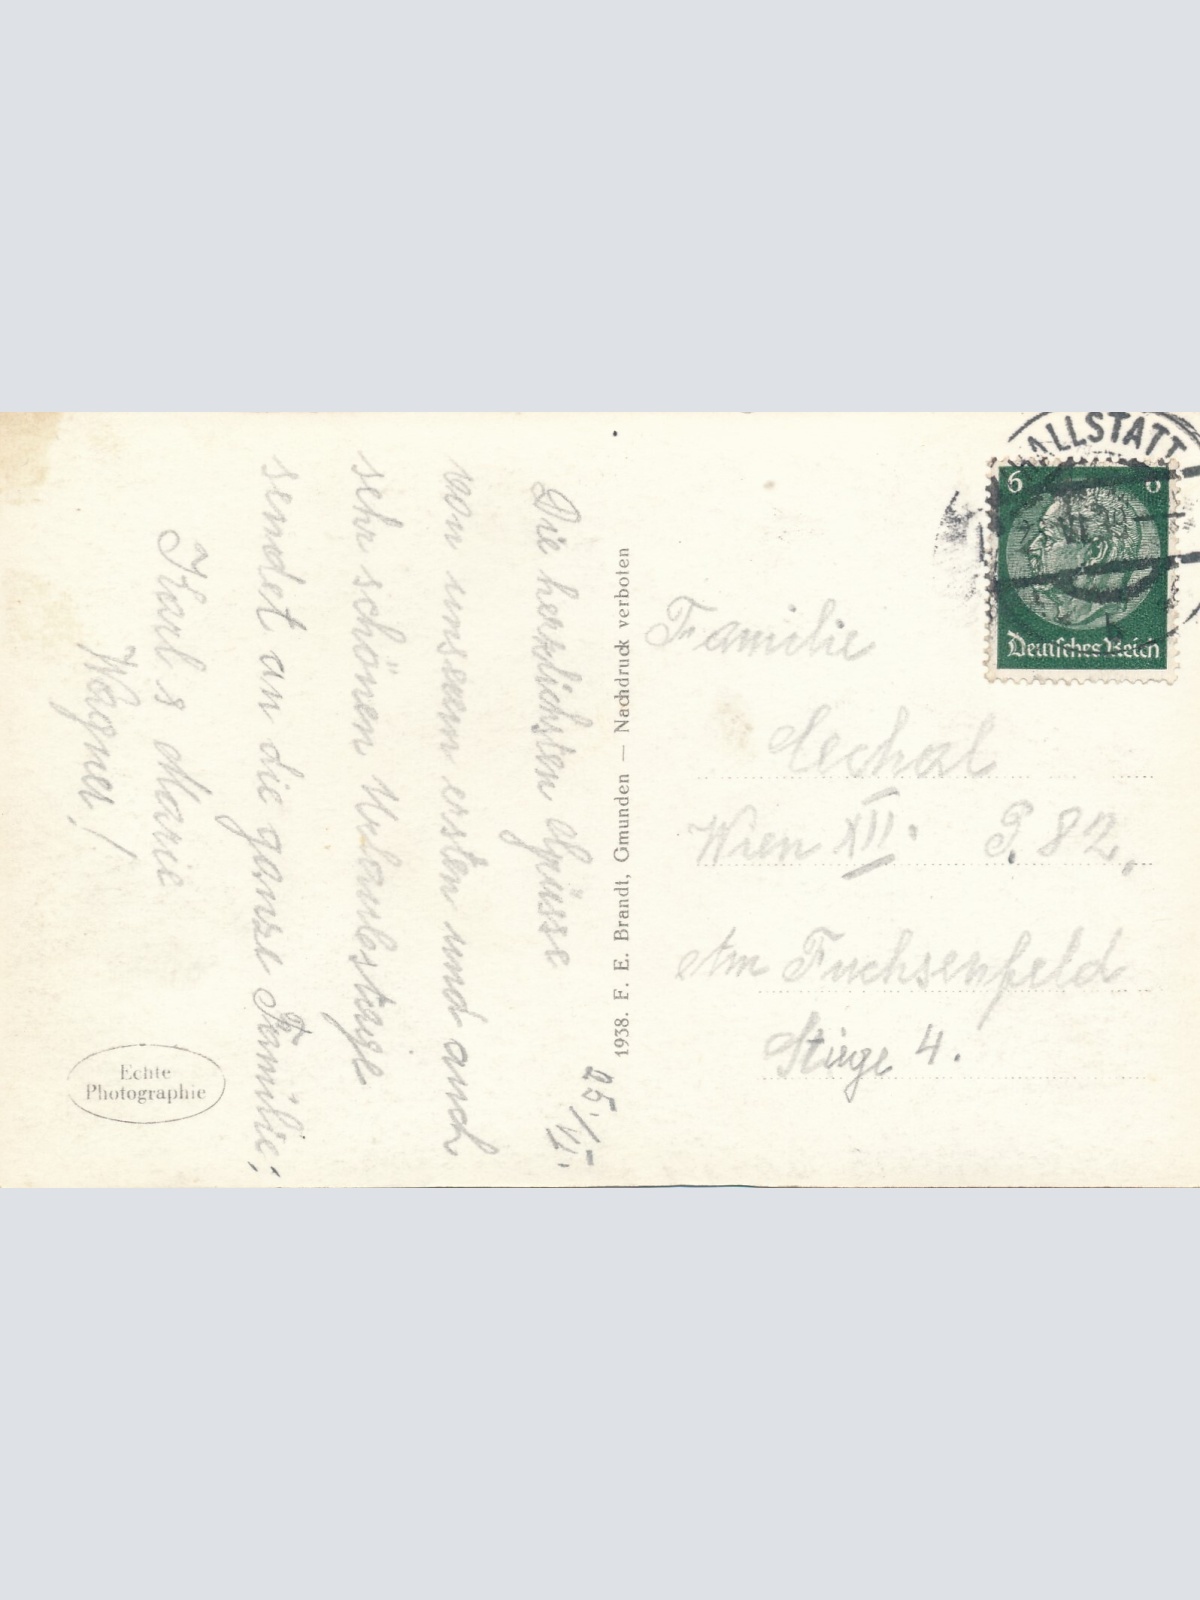 25./VI.
Die herzlichsten Grüsse
von unserem ersten und auch
sehr schönen Urlaubstage
sendet an die ganze Familie;
Karl & Marie
Wagner!
Echte
Photographie
1938. F. E. Brandt, Gmunden — Nachdruck verboten
HALLSTATT
6 6
Deutsches Reich
Familie
Wien XII. P. 82.
Am Fuchsenfeld
Stiege 4.